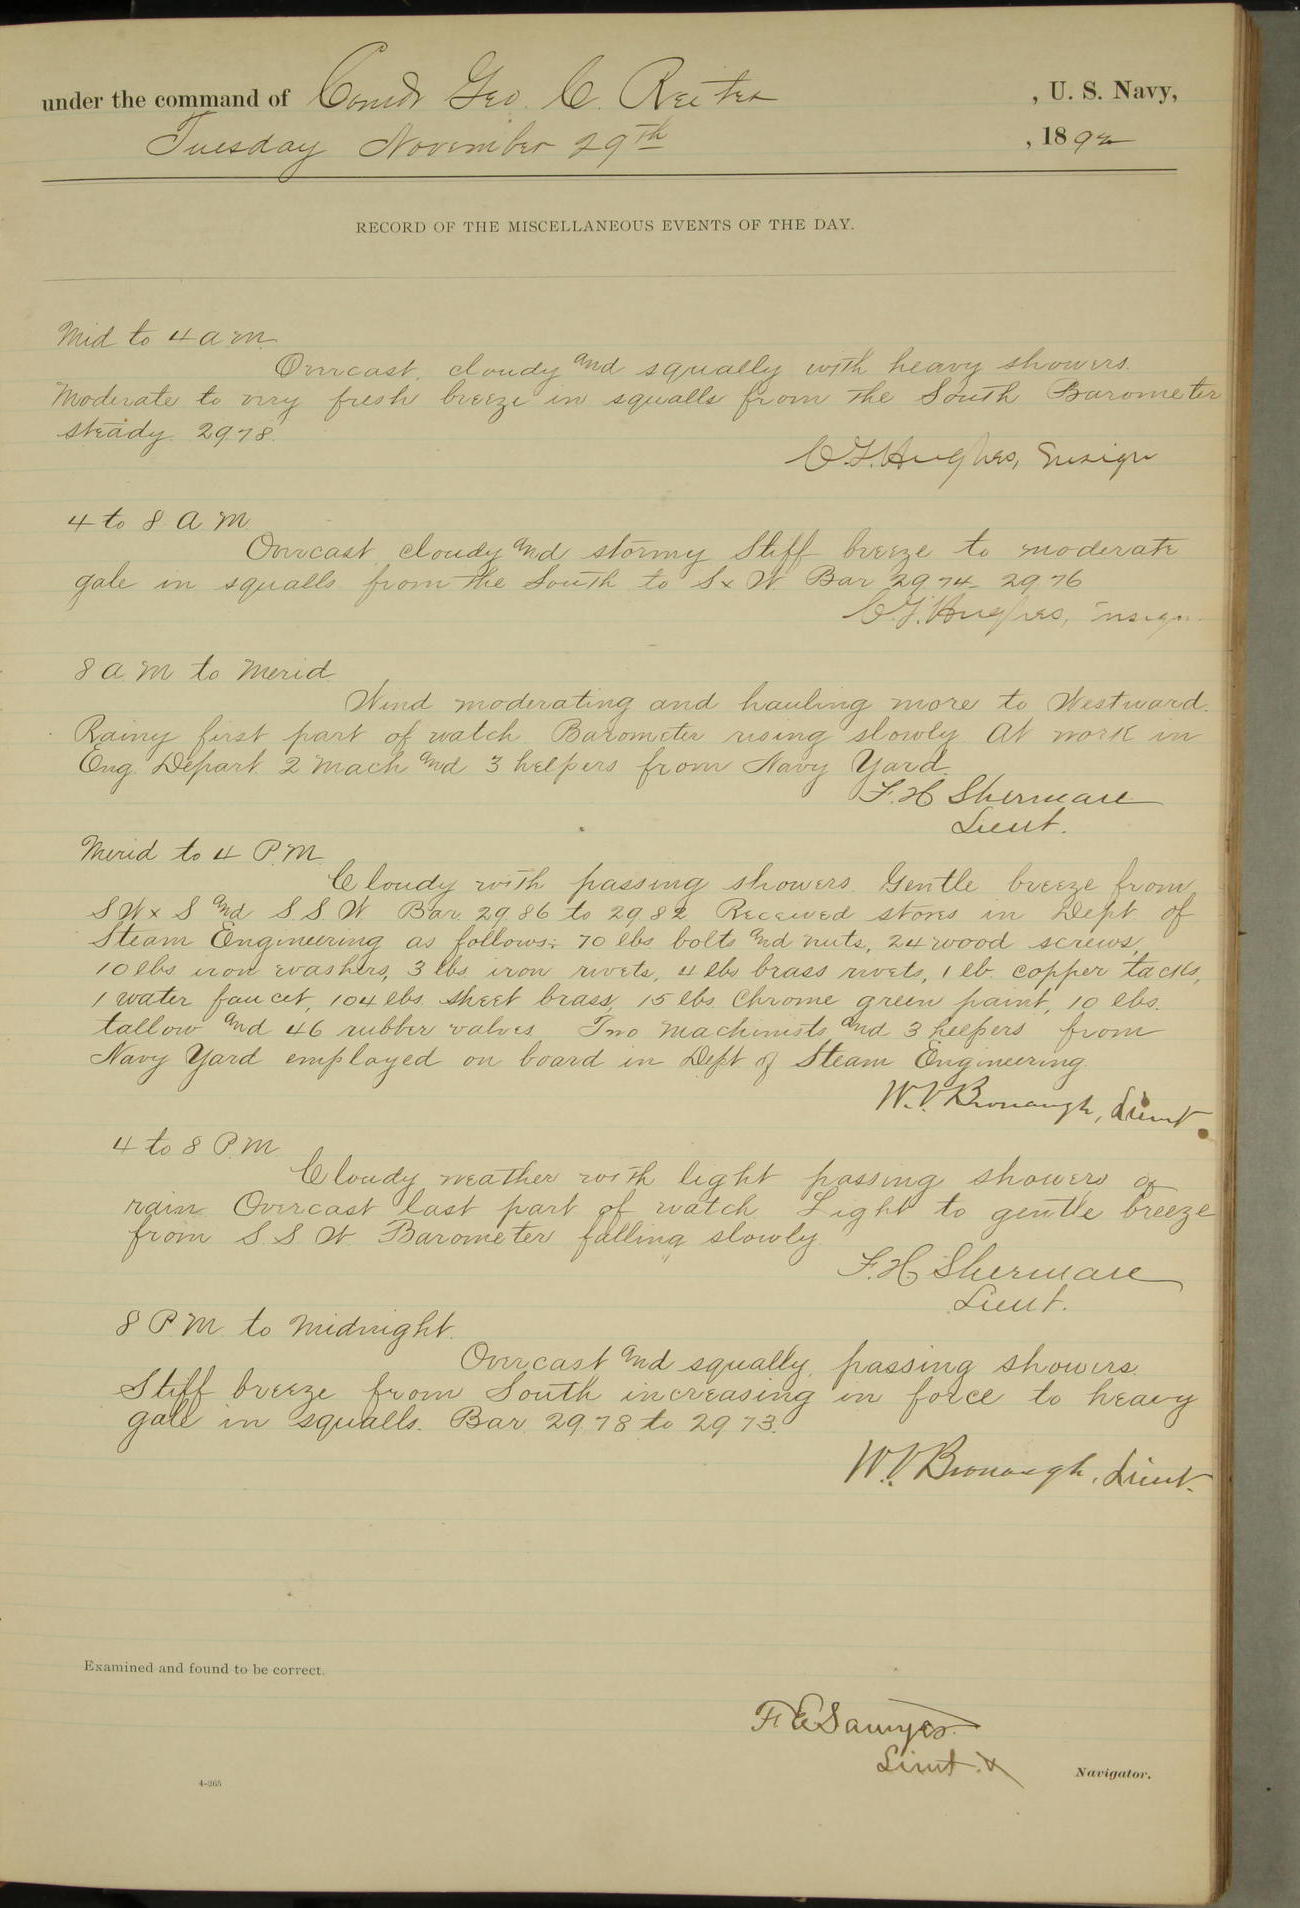 under the command of Comdr Geo. C. Reiter, U. S. Navy,
Tuesday November 29th, 1892
RECORD OF THE MISCELLANEOUS EVENTS OF THE DAY.
Mid to 4 a m.
Overcast, cloudy and squally with heavy showers.
Moderate to very fresh breeze in squalls from the South Barometer
steady 29.78.
C.F. Hughes, Ensign
4 to 8 A M
Overcast cloudy and stormy Stiff breeze to moderate
gale in squalls from the South to S x W. Bar 29.74 29.76
C.F. Hughes, Ensign
8 a m to merid
Wind moderating and hauling more to Westward.
Rainy first part of watch Barometer rising slowly At work in
Eng. Depart. 2 mach and 3 helpers from Navy Yard
F. H Sherman
Lieut.
Merid to 4 P.M.
Cloudy with passing showers. Gentle breeze from
S W x S and S. S. W. Bar. 29.86 to 29.82 Received stores in Dept. of
Steam Engineering as follows: 70 lbs bolts and nuts, 24 wood screws,
10 lbs iron washers, 3 lbs. iron rivets, 4 lbs brass rivets, 1 lb. copper tacks,
1 water faucet, 104 lbs. sheet brass, 15 lbs Chrome green paint, 10 lbs.
tallow and 46 rubber valves Two machinists and 3 helpers from
Navy Yard employed on board in Dept of Steam Engineering
W. V. Bronaugh, Lieut.
4 to 8 P.M
Cloudy weather with light passing showers of
rain Overcast last part of watch Light to gentle breeze
from S. S. W Barometer falling slowly
F. H Sherman
Lieut.
8 P M to Midnight.
Overcast and squally, passing showers.
Stiff breeze from South increasing in force to heavy
gale in squalls. Bar. 29.78 to 29.73.
W. V. Bronaugh, Lieut.
Examined and found to be correct.
F. E Sawyer.
Lieut. &
Navigator.
4-265